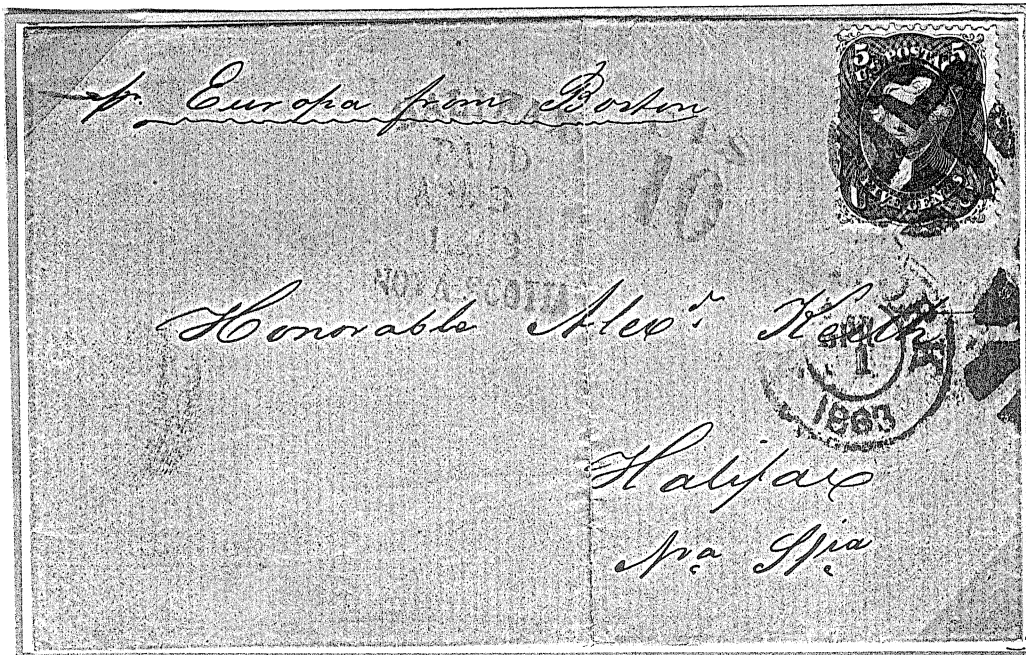 pr. Europa from Boston
5 U.S. POSTAGE 5
FIVE CENTS
PAID
10
NOVA SCOTIA
Honorable Alexr. Keith
1
1863
Halifax
Nva Sjia